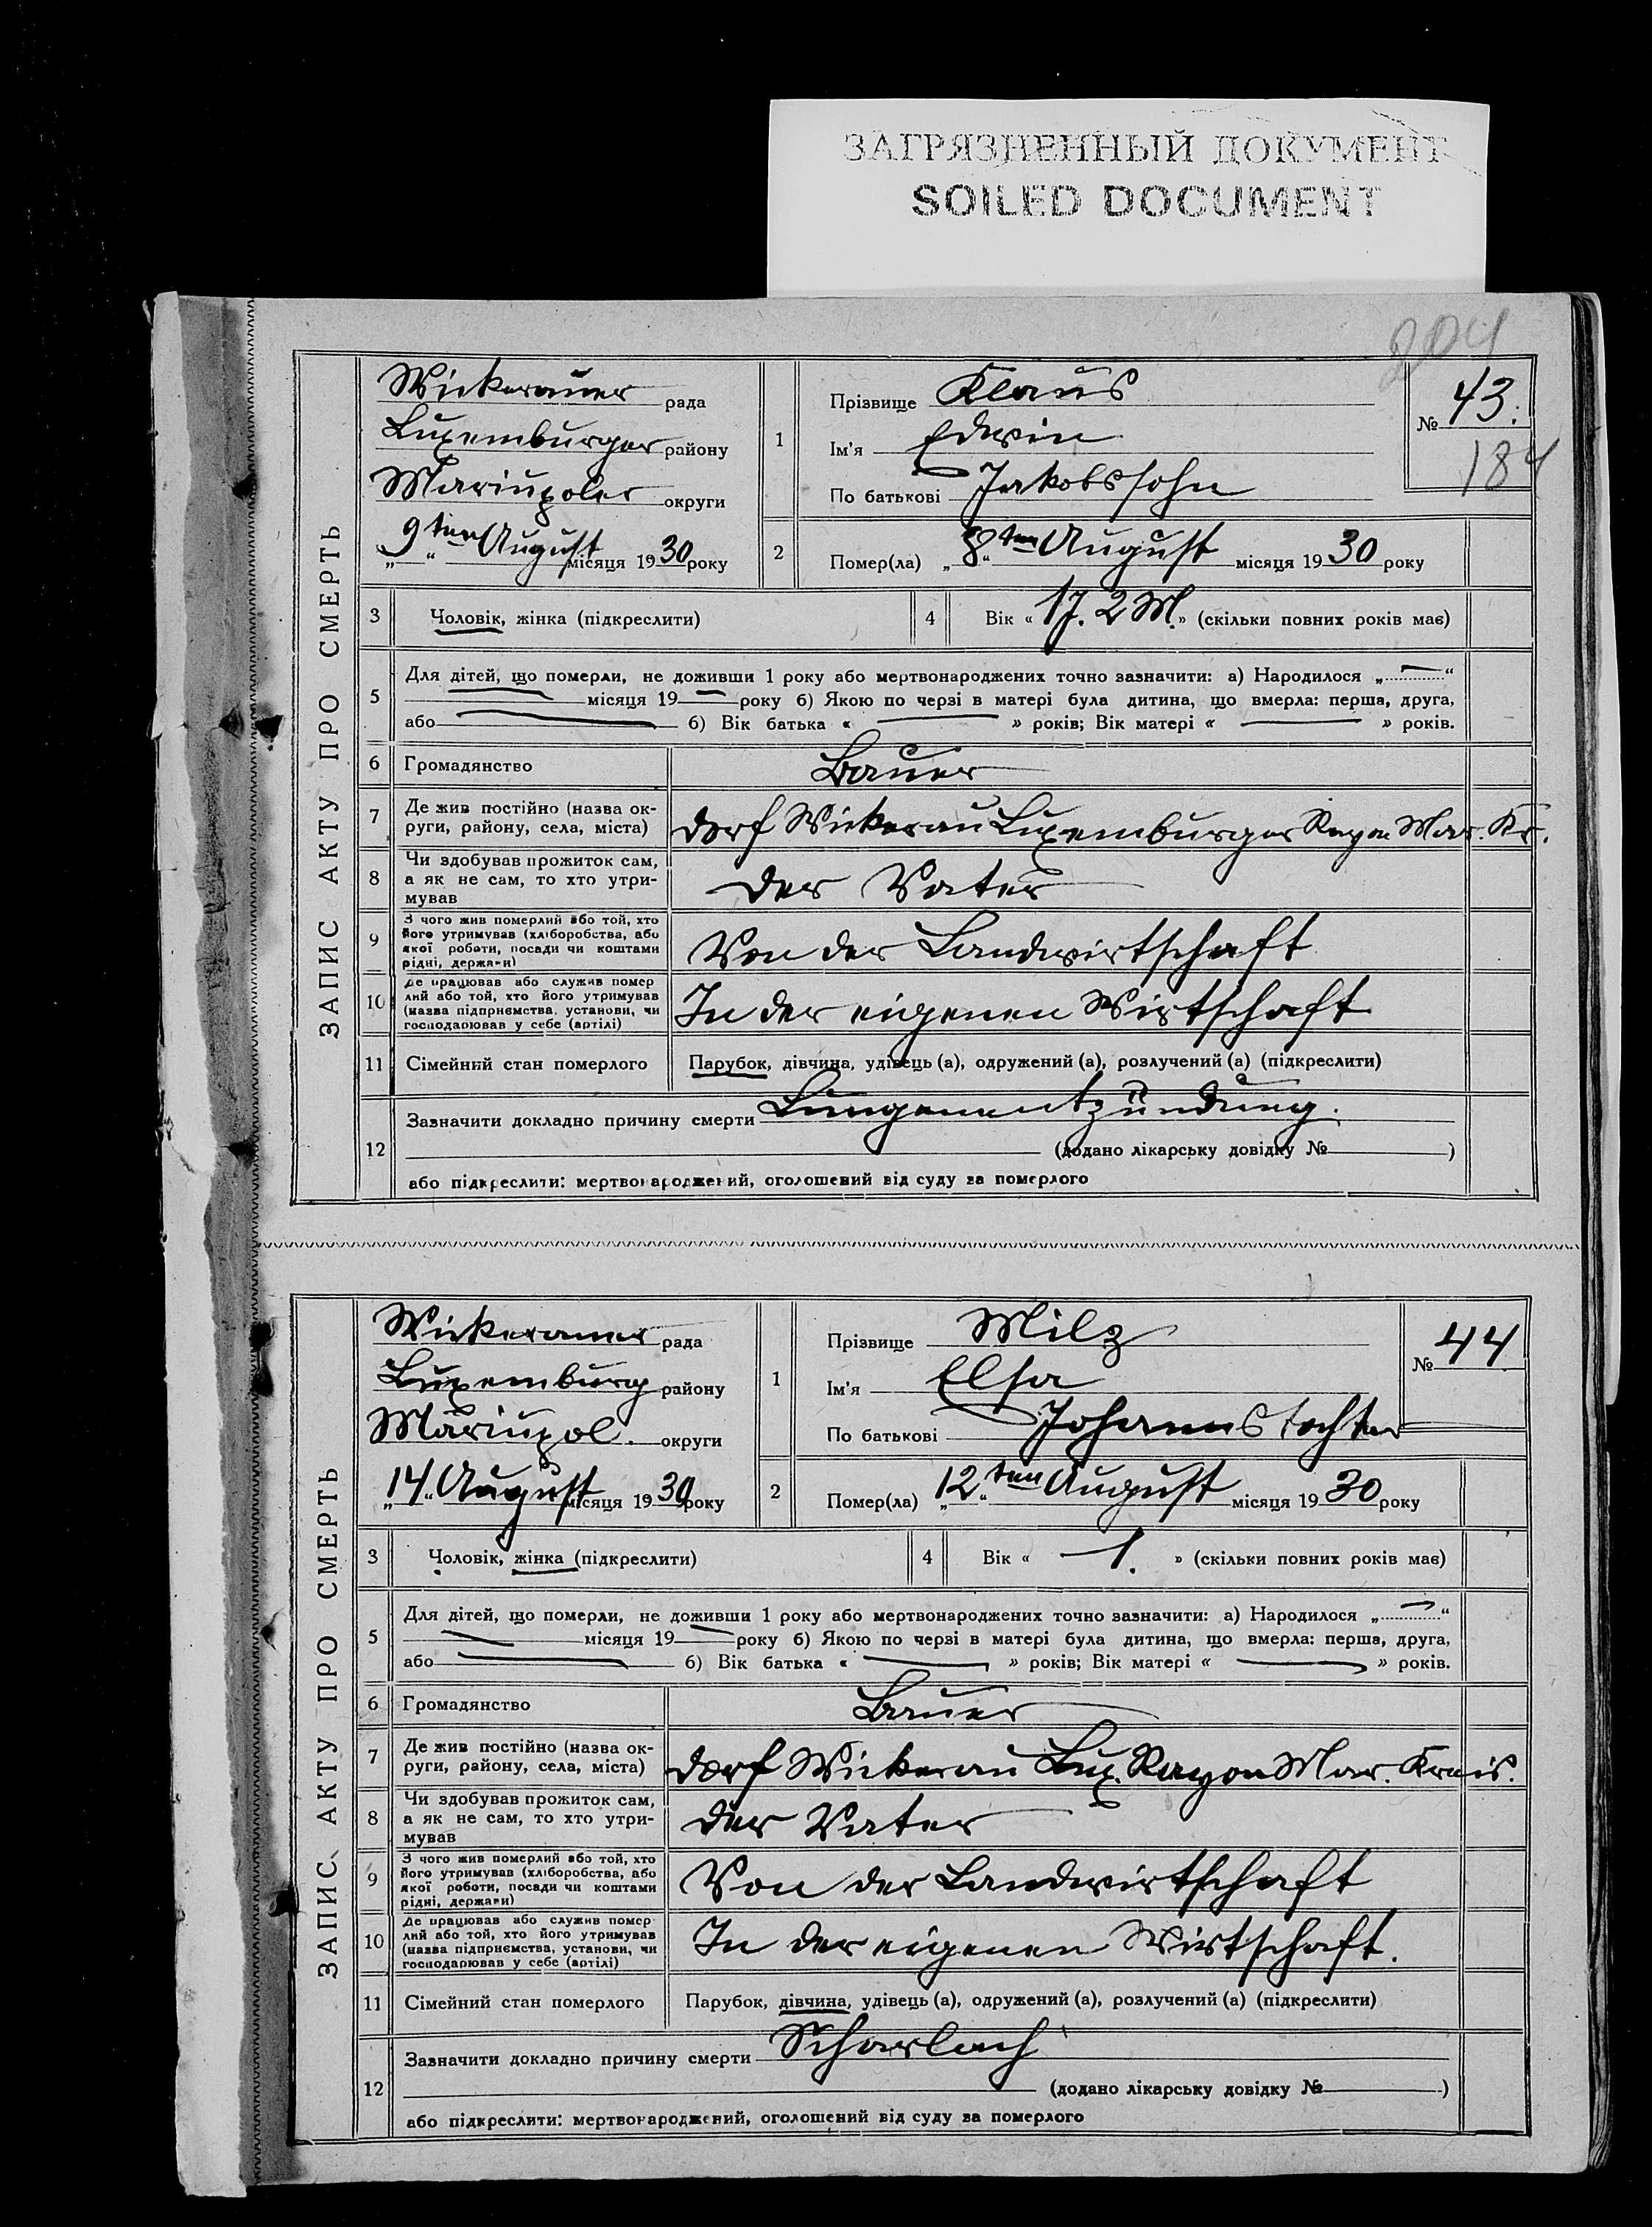 ЗАГРЯЗНЕННЫЙ ДОКУМЕНТ
SOILED DOCUMENT
204
ЗАПИС АКТУ ПРО СМЕРТЬ
Wickerauer рада
Luxemburger району
Mariupoler округи
„9ten“ August місяця 1930 року
1
Прізвище Klaus
Ім'я Edwin
По батькові Jakobssohn
№ 43.
184
2
Помер(ла) „8ten“ August місяця 1930 року
3 Чоловік, жінка (підкреслити)
4 Вік « 1J. 2 M. » (скільки повних років має)
5
Для дітей, що померли, не доживши 1 року або мертвонароджених точно зазначити: а) Народилося „—“
— місяця 19— року б) Якою по черзі в матері була дитина, що вмерла: перша, друга,
або — б) Вік батька « — » років; Вік матері « — » років.
6 Громадянство Bauer
7 Де жив постійно (назва ок-
руги, району, села, міста) Dorf Wickerau Luxemburger Rayon Mar. Kr.
8 Чи здобував прожиток сам,
а як не сам, то хто утри-
мував Der Vater
9 З чого жив померлий або той, хто
його утримував (хліборобства, або
якої роботи, посади чи коштами
рідні, держави) Von der Landwirtschaft
10 Де працював або служив помер
лий або той, хто його утримував
(назва підприємства, установи, чи
господарював у себе (артілі) In der eigenen Wirtschaft
11 Сімейний стан померлого Парубок, дівчина, удівець (а), одружений (а), розлучений (а) (підкреслити)
12
Зазначити докладно причину смерти Lungenentzündung.
(додано лікарську довідку № )
або підкреслити: мертвонароджений, оголошений від суду за померлого
ЗАПИС АКТУ ПРО СМЕРТЬ
Wickerauer рада
Luxemburg району
Mariupol. округи
„14“ August місяця 1930 року
1
Прізвище Milz
Ім'я Elsa
По батькові Johannstochter
№ 44
2
Помер(ла) „12ten“ August місяця 1930 року
3 Чоловік, жінка (підкреслити)
4 Вік « — 1. » (скільки повних років має)
5
Для дітей, що померли, не доживши 1 року або мертвонароджених точно зазначити: а) Народилося „—“
— місяця 19— року б) Якою по черзі в матері була дитина, що вмерла: перша, друга,
або — б) Вік батька « — » років; Вік матері « — » років.
6 Громадянство Bauer
7 Де жив постійно (назва ок-
руги, району, села, міста) Dorf Wickerau Lux. Rayon Mar. Kreis.
8 Чи здобував прожиток сам,
а як не сам, то хто утри-
мував Der Vater
9 З чого жив померлий або той, хто
його утримував (хліборобства, або
якої роботи, посади чи коштами
рідні, держави) Von der Landwirtschaft
10 Де працював або служив помер
лий або той, хто його утримував
(назва підприємства, установи, чи
господарював у себе (артілі) In der eigenen Wirtschaft.
11 Сімейний стан померлого Парубок, дівчина, удівець (а), одружений (а), розлучений (а) (підкреслити)
12
Зазначити докладно причину смерти Scharlach
(додано лікарську довідку № )
або підкреслити: мертвонароджений, оголошений від суду за померлого